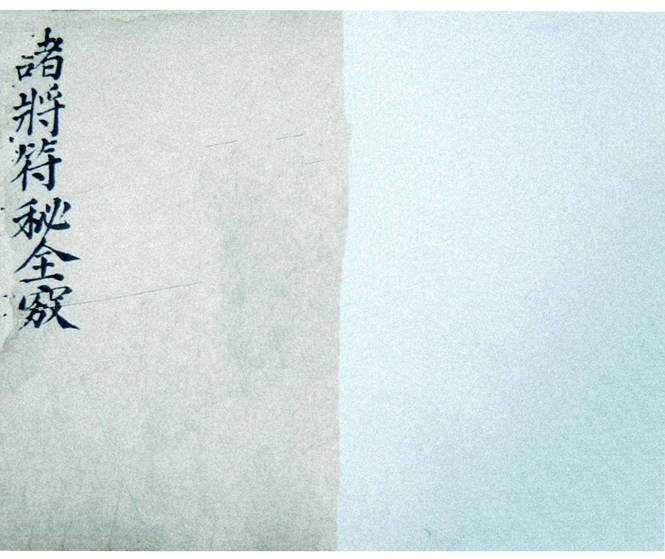 諸將符秘全竅